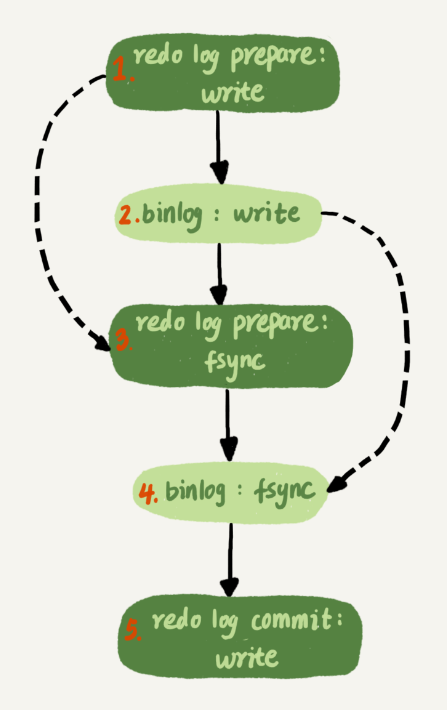 1. redo log prepare:
write
2.binlog : write
3. redo log prepare:
fsync
4. binlog : fsync
5. redo log commit:
write